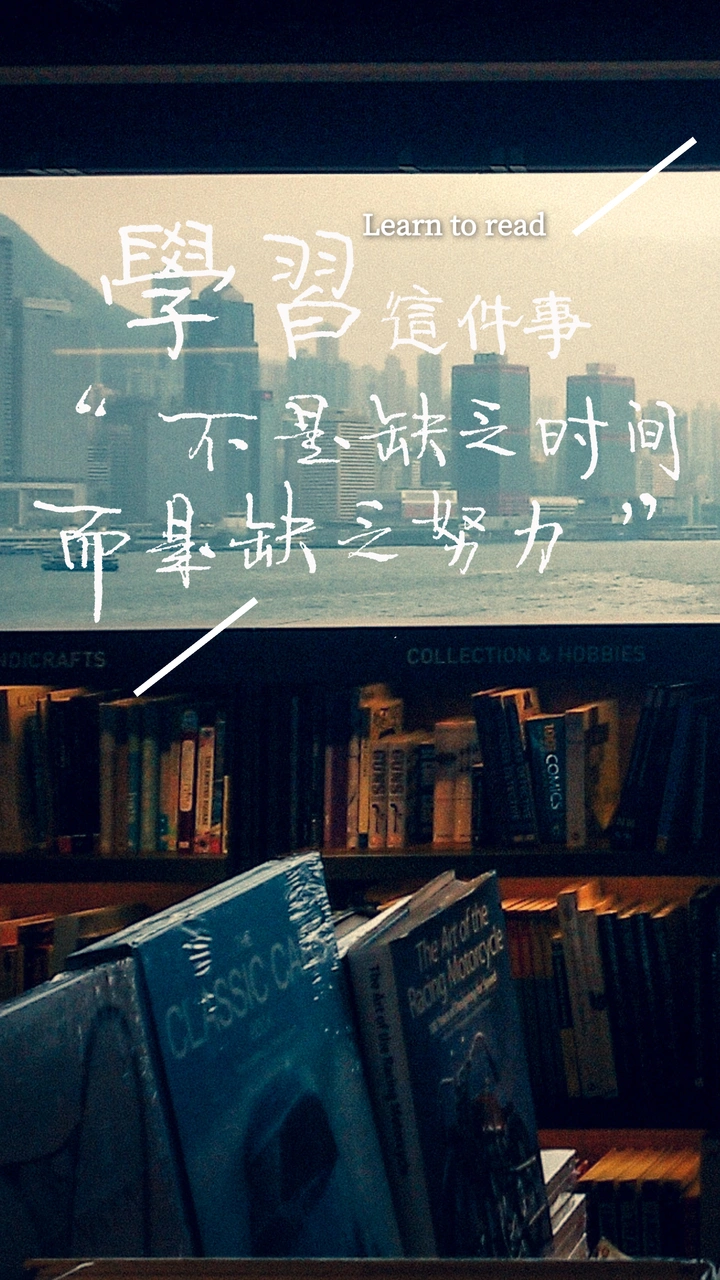 Learn to read
學習這件事
“不是缺乏时间
而是缺乏努力”
NDICRAFTS
COLLECTION & HOBBIES
COMICS
THE
CLASSIC CAR
BOOK
The Art of the
Racing Motorcycle
The Art of the Racing Motorcycle